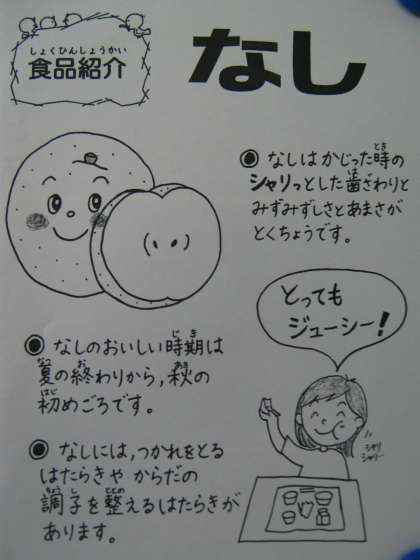 しょくひんしょうかい
食品紹介
なし
◉ なしはかじった時の
とき
シャリっとした歯ざわりと
は
みずみずしさとあまさが
とくちょうです。
とっても
ジューシー!
◉ なしのおいしい時期は
じき
夏の終わりから,秋の
なつ お あき
初めごろです。
はじ
シャリ
シャリー
◉ なしには,つかれをとる
はたらきや からだの
調子を整えるはたらきが
ちょうし ととの
あります。